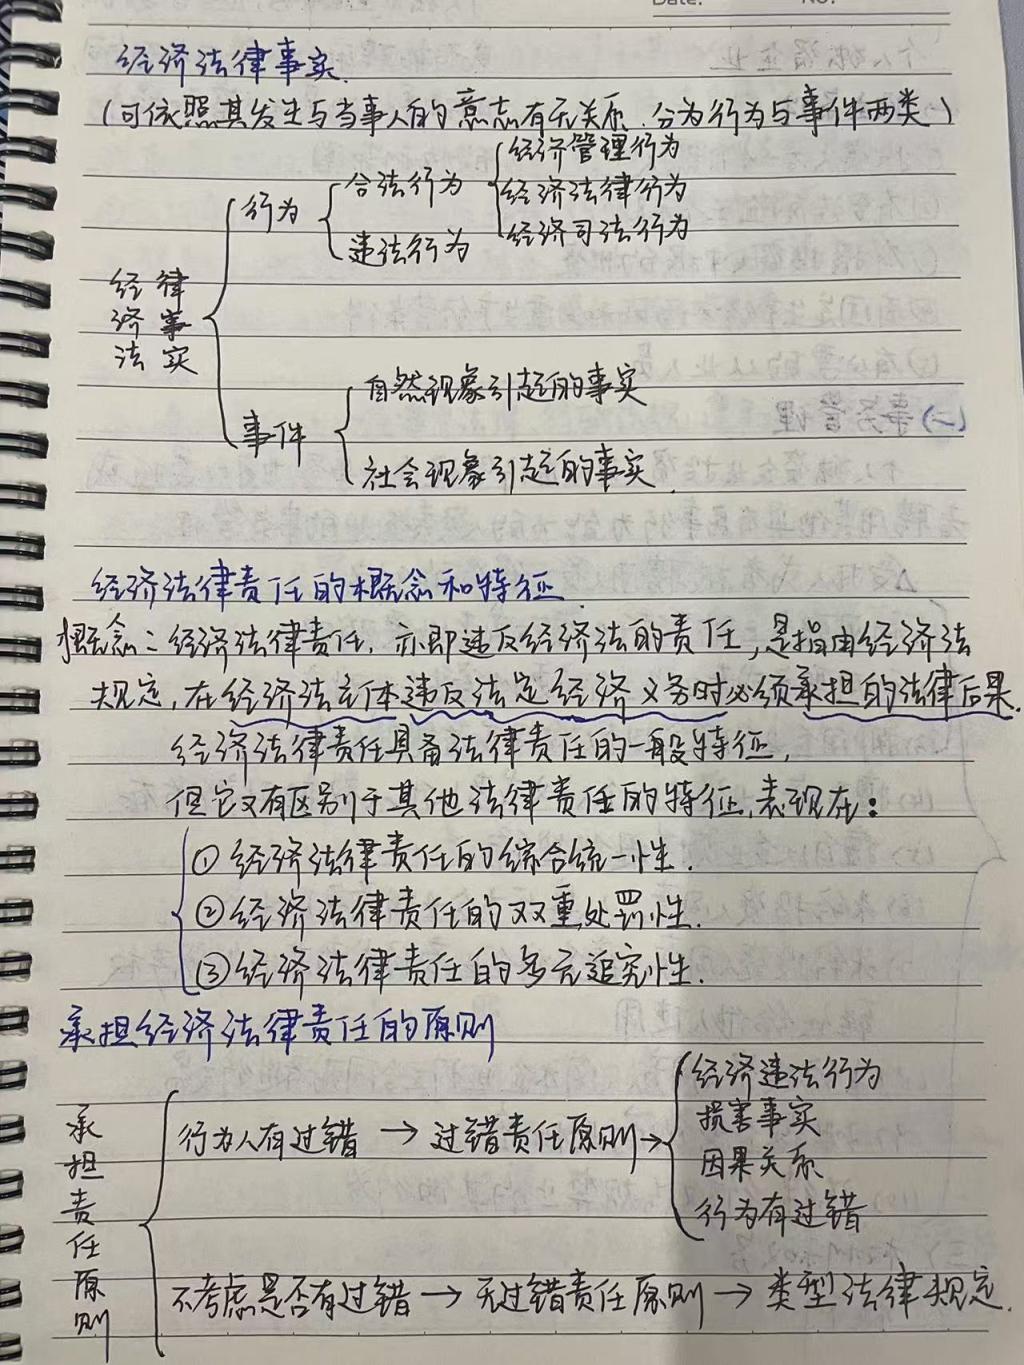 Date: No.
经济法律事实.
(可依照其发生与当事人的意志有无关系.分为行为与事件两类)
经济法律事实
行为
合法行为
经济管理行为
经济法律行为
经济司法行为
违法行为
事件
自然现象引起的事实
社会现象引起的事实.
经济法律责任的概念和特征.
概念:经济法律责任,亦即违反经济法的责任,是指由经济法
规定,在经济法主体违反法定经济义务时必须承担的法律后果.
经济法律责任具备法律责任的一般特征,
但它又有区别于其他法律责任的特征,表现在:
①经济法律责任的综合统一性.
②经济法律责任的双重处罚性.
③经济法律责任的多元追究性.
承担经济法律责任的原则
承担责任原则
行为人有过错→过错责任原则→
经济违法行为
损害事实
因果关系
行为有过错
不考虑是否有过错→无过错责任原则→类型法律规定.